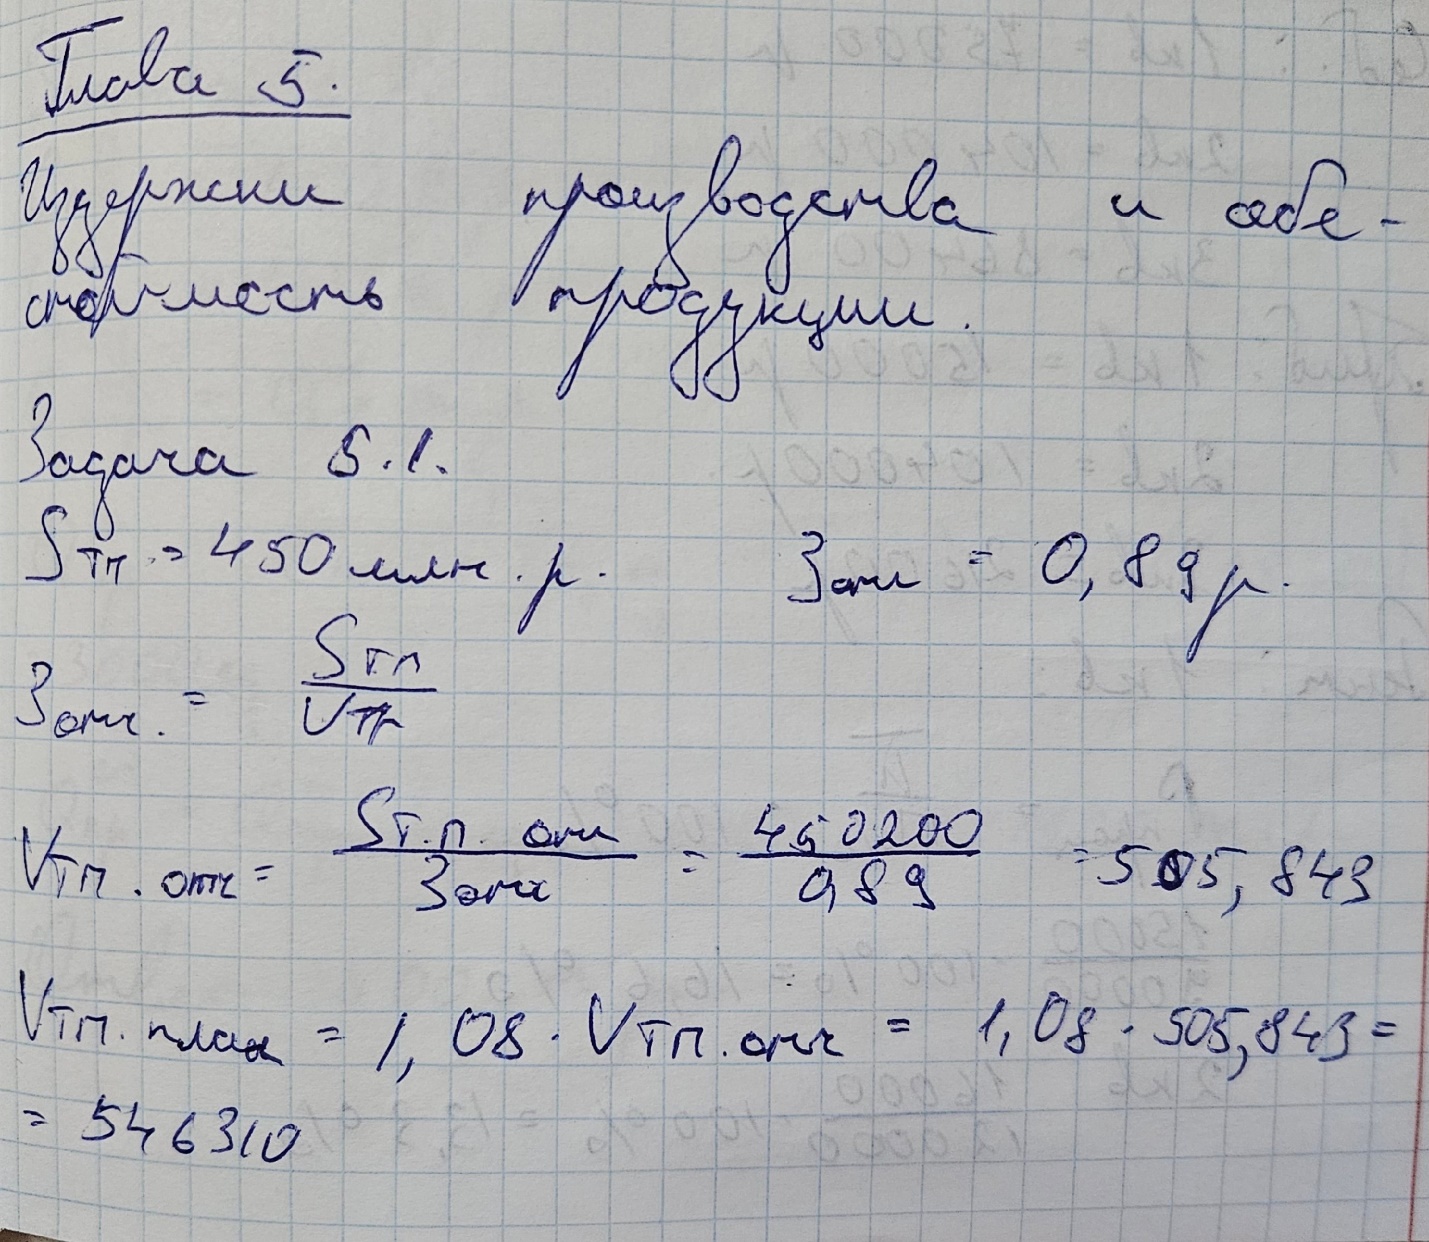 Глава 5.
Издержки производства и себе-
стоимость продукции.
Задача 5.1.
Sтп = 450 млн. р. Зотч = 0,89 р.
Зотч. = Sтп / Vтп
Vтп. отч = Sт.п. отч / Зотч = 450200 / 0,89 = 505,843
Vтп. план = 1,08 · Vтп. отч = 1,08 · 505,843 =
= 546310